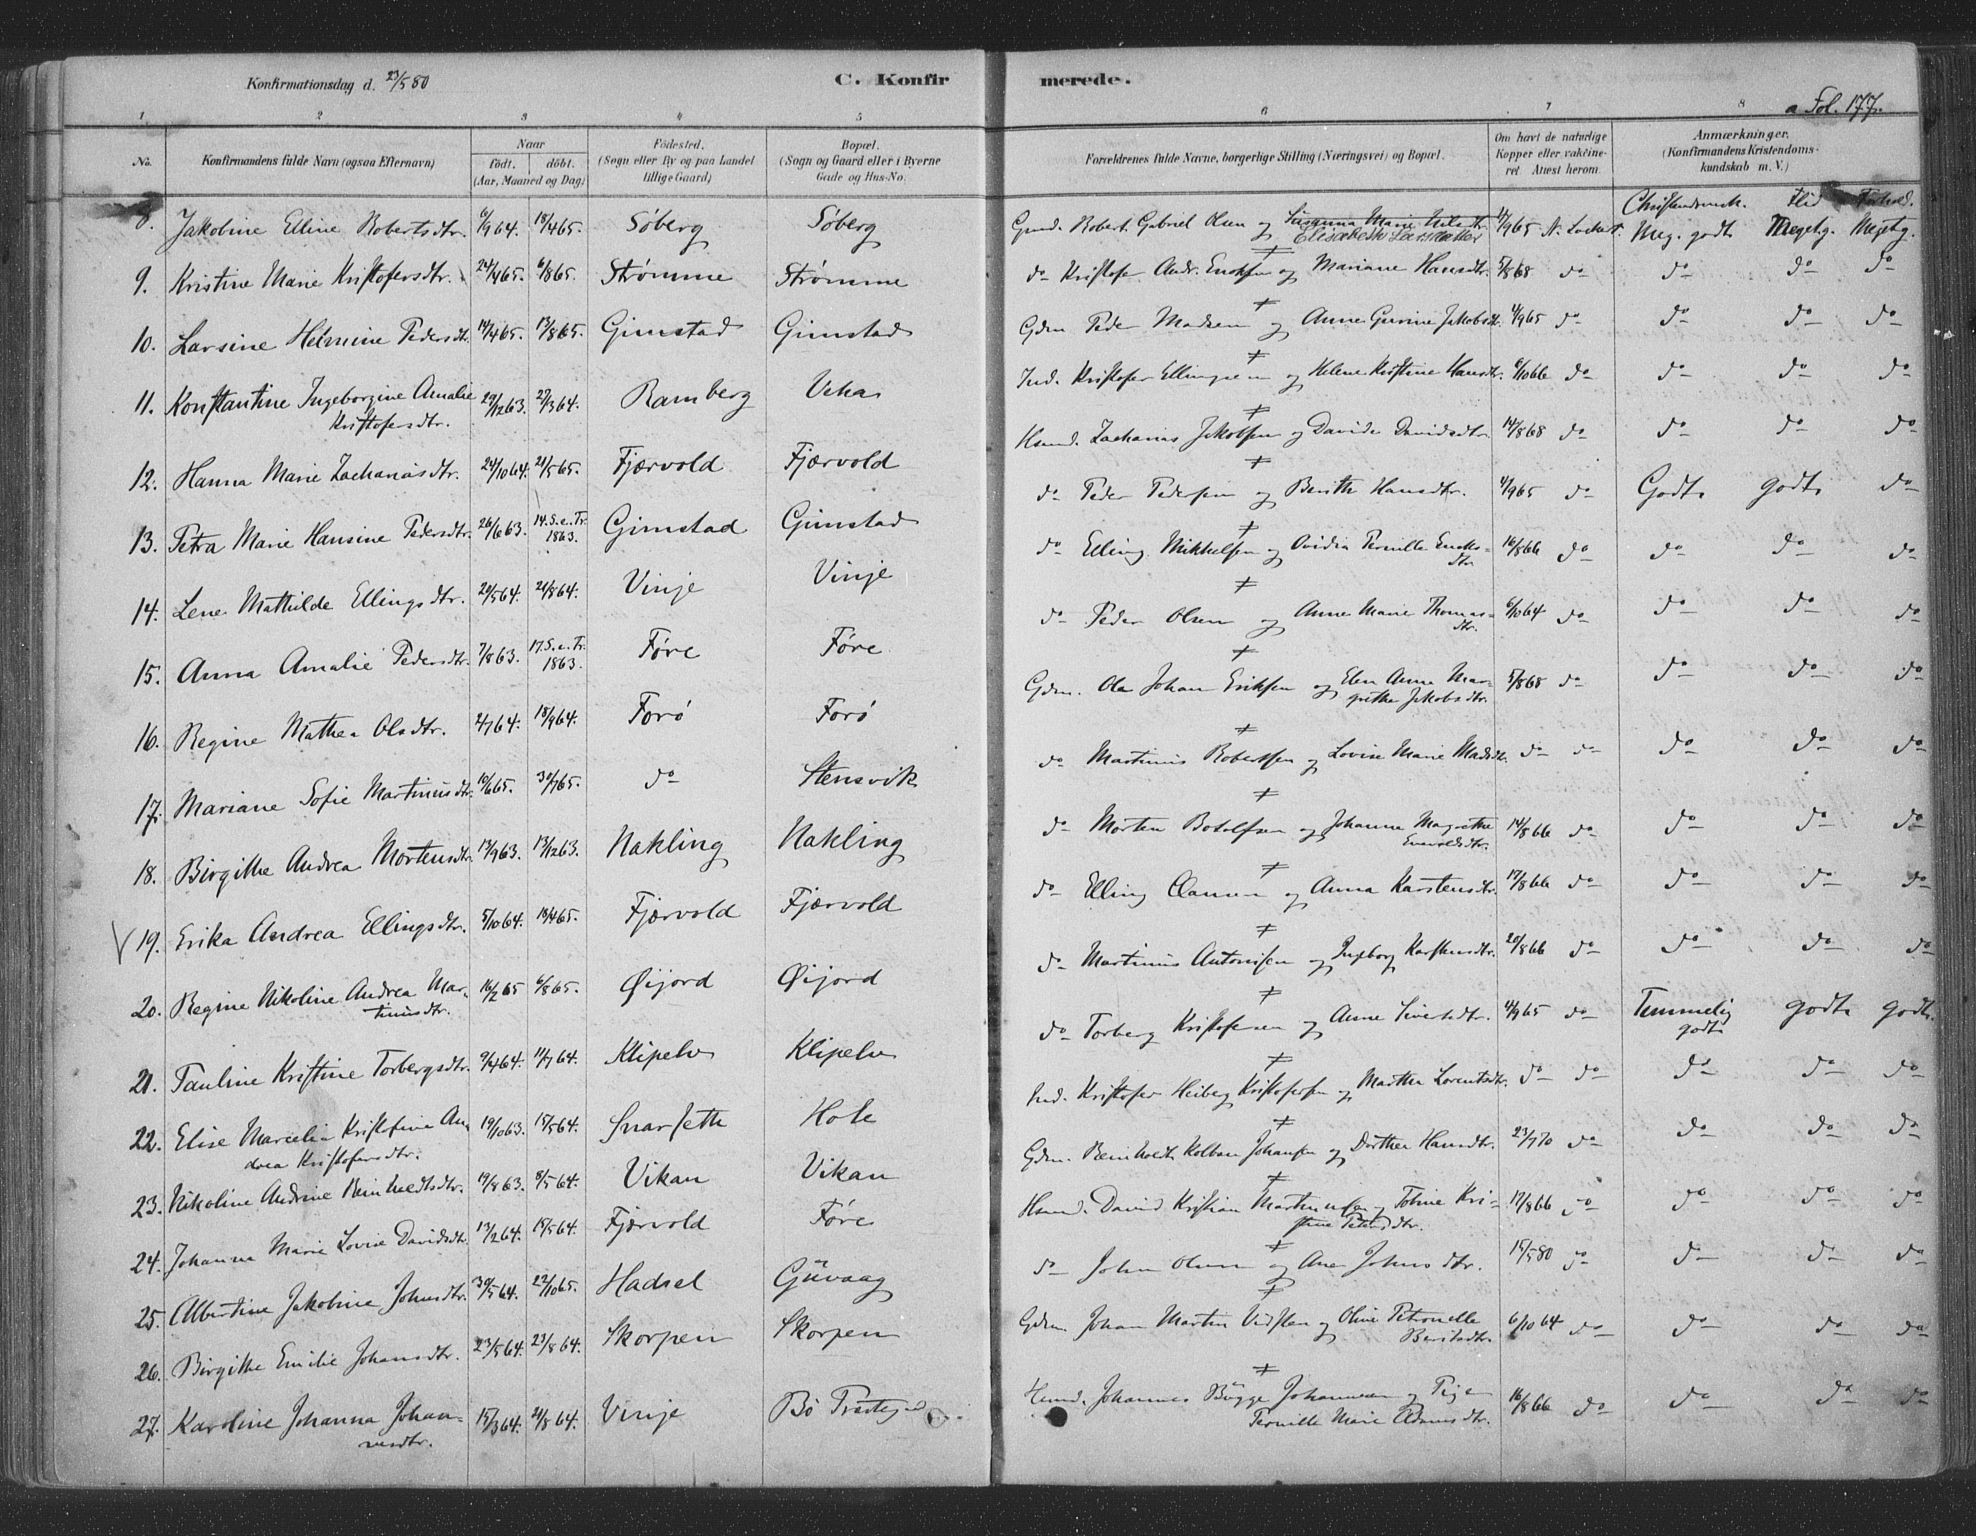 Konfirmationsdag d. 23/5 80
C. Konfirmerede.
a Fol. 177.
1 2 3 4 5 6 7 8
No. Konfirmandens fulde Navn (ogsaa Efternavn) Naar födt. döbt. (Aar, Maaned og Dag.) Födested. (Sogn eller By og paa Landet tillige Gaard) Bopæl. (Sogn og Gaard eller i Byerne Gade og Hus-No. Forældrenes fulde Navne, borgerlige Stilling (Næringsvei) og Bopæl. Om havt de naturlige Kopper eller vakcineret. Attest herom. Anmærkninger. (Konfirmandens Kristendomskundskab m. V.)
Flid Forhold.
8. Jakobine Eline Robertsdtr. 6/9 64. 18/4 65. Söberg Söberg Robert Gabriel Olsen og Susanna Marie Nilsdtr. Elisabeth Larsdatter 4/9 65 Meg. godt Megetg. Megetg.
9. Kristine Marie Kristofersdtr. 24/4 65. 6/8 65. Strømme Strømme do Kristofer Andr. Enoksen og Mariane Hansdtr. 5/8 68 do do do do
10. Larsine Helmine Pedersdtr. 14/4 65. 13/8 65. Gimstad Gimstad Gdm. Peder Madsen og Anne Gurine Jakobsdtr. 4/9 65 do do do do
11. Konstantine Ingeborgine Amalie Kristofersdtr. 29/12 63. 27/3 64. Ramberg Veha Ind. Kristofer Ellingsen og Helene Kristine Hansdtr. 6/10 66 do do do do
12. Hanna Marie Zachariasdtr. 24/10 64. 21/5 65. Fjærvold Fjærvold Hsmd. Zacharias Jakobsen og Davida Davidsdtr. 14/8 68 do do do do
13. Petra Marie Hansine Pedersdtr. 26/6 63. 14. S. e. Tr. 1863. Gimstad Gimstad do Peder Pedersen og Berith Hansdtr. 4/9 65 do Godt godt do
14. Lene Mathilde Ellingsdtr. 20/5 64. 21/8 64. Vinje Vinje do Elling Mikkelsen og Ovidia Pernille Enoksdtr. 16/8 66 do do do do
15. Anna Amalie Pedersdtr. 7/8 63. 17. S. e. Tr. 1863. Føre Føre do Peder Olsen og Anne Marie Thomasdtr. 6/10 64 do do do do
16. Regine Mathea Olsdtr. 2/7 64. 18/9 64. Forö Forö Gdm. Ole Johan Eriksen og Elen Anne Margrethe Jakobsdtr. 5/8 68 do do do do
17. Mariane Sofie Martinusdtr. 10/6 65. 30/7 65. do Stensvik do Martinus Robertsen og Lovise Marie Madsdtr. do do do do do
18. Birgithe Andrea Mortensdtr. 13/9 63. 13/12 63. Nakling Nakling do Morten Botolfsen og Johanna Magrethe 14/8 66 do do do do
19. Erika Andrea Ellingsdtr. 5/10 64. 18/4 65. Fjærvold Fjærvold do Elling Clausen og Anna Karstensdtr. 17/8 66 do do do do
20. Regine Nikoline Andrea Martinusdtr. 16/2 65 6/8 65. Øijord Øijord do Martinus Antonisen og Ingborg Karstensdtr. 20/8 66 do do do do
21. Pauline Kristine Torbergsdtr. 9/4 64. 11/7 64. Klipelv Klipelv do Torberg Kristofersen og Anne 4/9 65 do Temmelig godt godt godt.
22. Elise Marcelia Kristofine Andrea Kristofersdtr. 19/10 63. 15/5 64. Snarseth Hole Ind. Kristofer Heiberg Kristofersen og Marthe Lorentsdtr. do do do do do
23. Nikoline Andrine Reinholdtsdtr. 19/8 63. 8/5 64. Vikan Vikan Gdm. Reinholdt Kolban Johansen og Dorthea Hansdtr. 23/7 70 do do do do
24. Johanna Marie Lovise Davidsdtr. 13/2 64. 15/5 64. Fjærvold Føre Hsmd. David Kristian Martinussen og Tobine Kristine Petersdtr. 17/8 66 do do do do
25. Albertine Jakobine Johnsdtr. 30/5 64. 22/10 65. Hadsel Güvaag do John Olsen og Ane Johnsdtr. 15/5 80 do do do do
26. Birgithe Emilie Johansdtr. 23/5 64. 23/8 64. Skorpen Skorpen Gdm. Johan Martin og Oline Petronelle Beritsdtr. 6/10 64 do do do do
27. Karoline Johanna Johannesdtr. 15/3 64. 21/8 64. Vinje Bö Præstegd. Hsmd. Johannes Bügge Johannesen og Pige Pernille Marie Adamsdtr. 16/8 66 do do do do